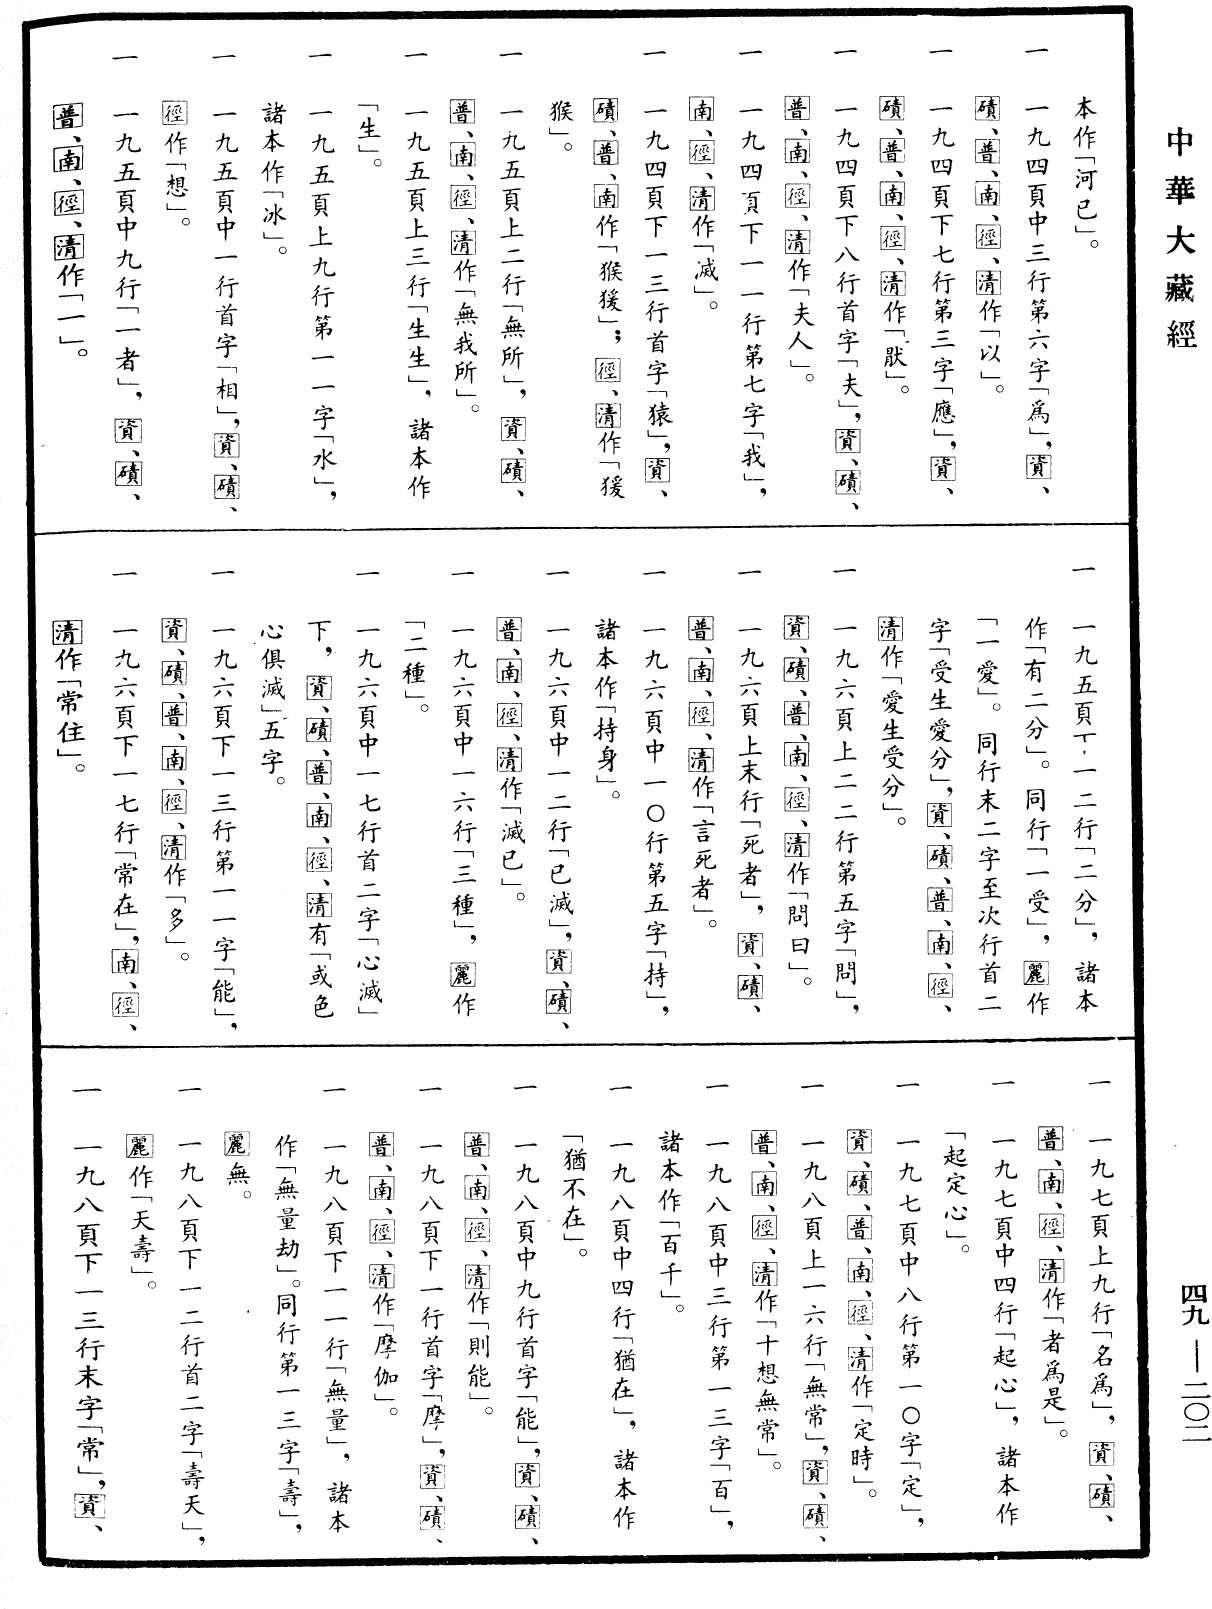 中華大藏經
本作「河已」。
一　一九四頁中三行第六字「爲」，資、
磧、普、南、徑、清作「以」。
一　一九四頁下七行第三字「應」，資、
磧、普、南、徑、清作「猒」。
一　一九四頁下八行首字「夫」，資、磧、
普、南、徑、清作「夫人」。
一　一九四頁下一一行第七字「我」，
南、徑、清作「滅」。
一　一九四頁下一三行首字「猿」，資、
磧、普、南作「猴猨」；徑、清作「猨
猴」。
一　一九五頁上二行「無所」，資、磧、
普、南、徑、清作「無我所」。
一　一九五頁上三行「生生」，諸本作
「生」。
一　一九五頁上九行第一一字「水」，
諸本作「冰」。
一　一九五頁中一行首字「相」，資、磧、
徑作「想」。
一　一九五頁中九行「一者」，資、磧、
普、南、徑、清作「一」。
一　一九五頁下一二行「二分」，諸本
作「有二分」。同行「一受」，麗作
「一愛」。同行末二字至次行首二
字「受生愛分」，資、磧、普、南、徑、
清作「愛生受分」。
一　一九六頁上二二行第五字「問」，
資、磧、普、南、徑、清作「問曰」。
一　一九六頁上末行「死者」，資、磧、
普、南、徑、清作「言死者」。
一　一九六頁中一〇行第五字「持」，
諸本作「持身」。
一　一九六頁中一二行「已滅」，資、磧、
普、南、徑、清作「滅已」。
一　一九六頁中一六行「三種」，麗作
「二種」。
一　一九六頁中一七行首二字「心滅」
下，資、磧、普、南、徑、清有「或色
心俱滅」五字。
一　一九六頁下一三行第一一字「能」，
資、磧、普、南、徑、清作「多」。
一　一九六頁下一七行「常在」，南、徑、
清作「常住」。
一　一九七頁上九行「名爲」，資、磧、
普、南、徑、清作「者爲是」。
一　一九七頁中四行「起心」，諸本作
「起定心」。
一　一九七頁中八行第一〇字「定」，
資、磧、普、南、徑、清作「定時」。
一　一九八頁上一六行「無常」，資、磧、
普、南、徑、清作「十想無常」。
一　一九八頁中三行第一三字「百」，
諸本作「百千」。
一　一九八頁中四行「猶在」，諸本作
「猶不在」。
一　一九八頁中九行首字「能」，資、磧、
普、南、徑、清作「則能」。
一　一九八頁下一行首字「摩」，資、磧、
普、南、徑、清作「摩伽」。
一　一九八頁下一一行「無量」，諸本
作「無量劫」。同行第一三字「壽」，
麗無。
一　一九八頁下一二行首二字「壽天」，
麗作「天壽」。
一　一九八頁下一三行末字「常」，資、
四九——二〇二